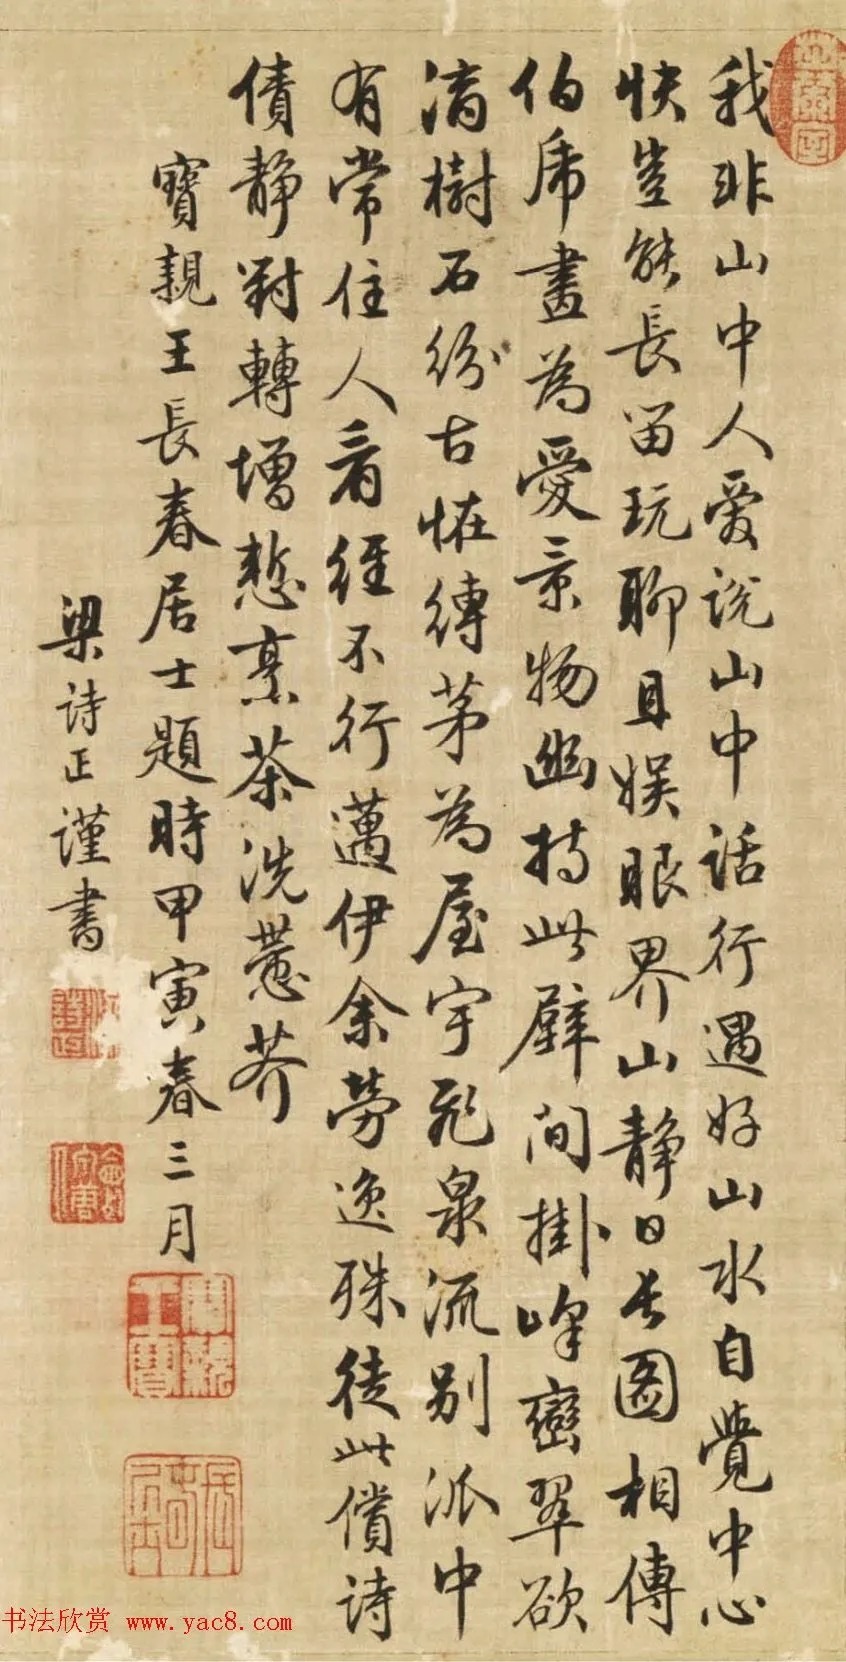 我非山中人爱説山中話行遇好山水自覺中心
快豈能長留玩聊且娱眼界山静日長圖相傳
伯虎畫為愛景物幽持此壁間掛峰巒翠欲
滴樹石紛古怪縛茅為屋宇飛泉流别派中
有常住人看經不行邁伊余勞逸殊徒此償詩
債静對轉增慙烹茶洗薑芥
寶親王長春居士題時甲寅春三月
梁詩正謹書
书法欣赏 www.yac8.com